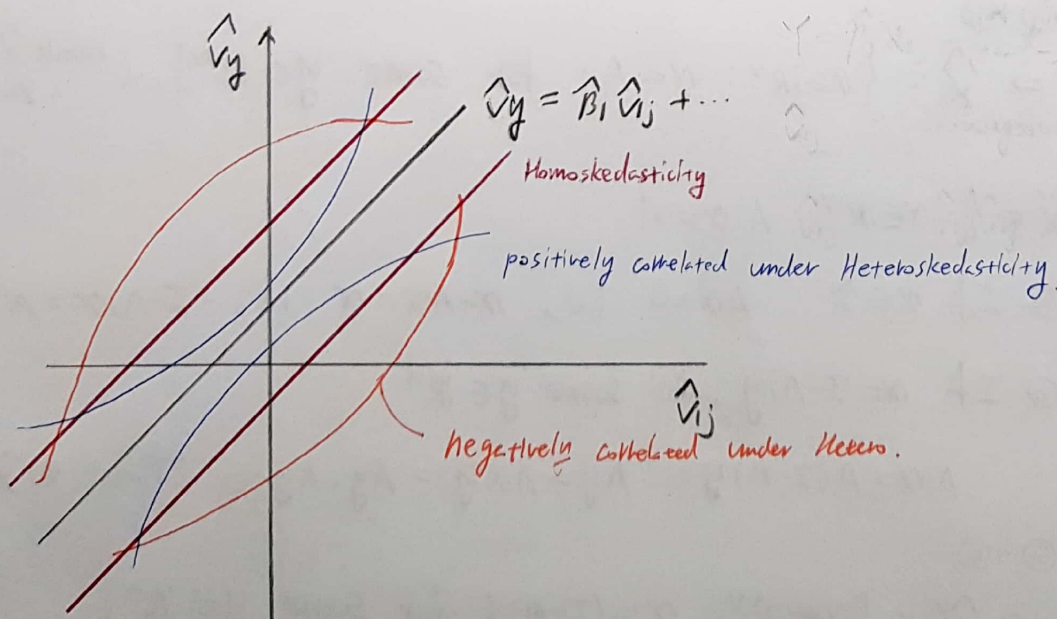 V̂y
V̂y = β̂₁ V̂₁j + ...
Homoskedasticity
positively correlated under Heteroskedasticity.
V̂₁j
negatively correlated under Hetero.